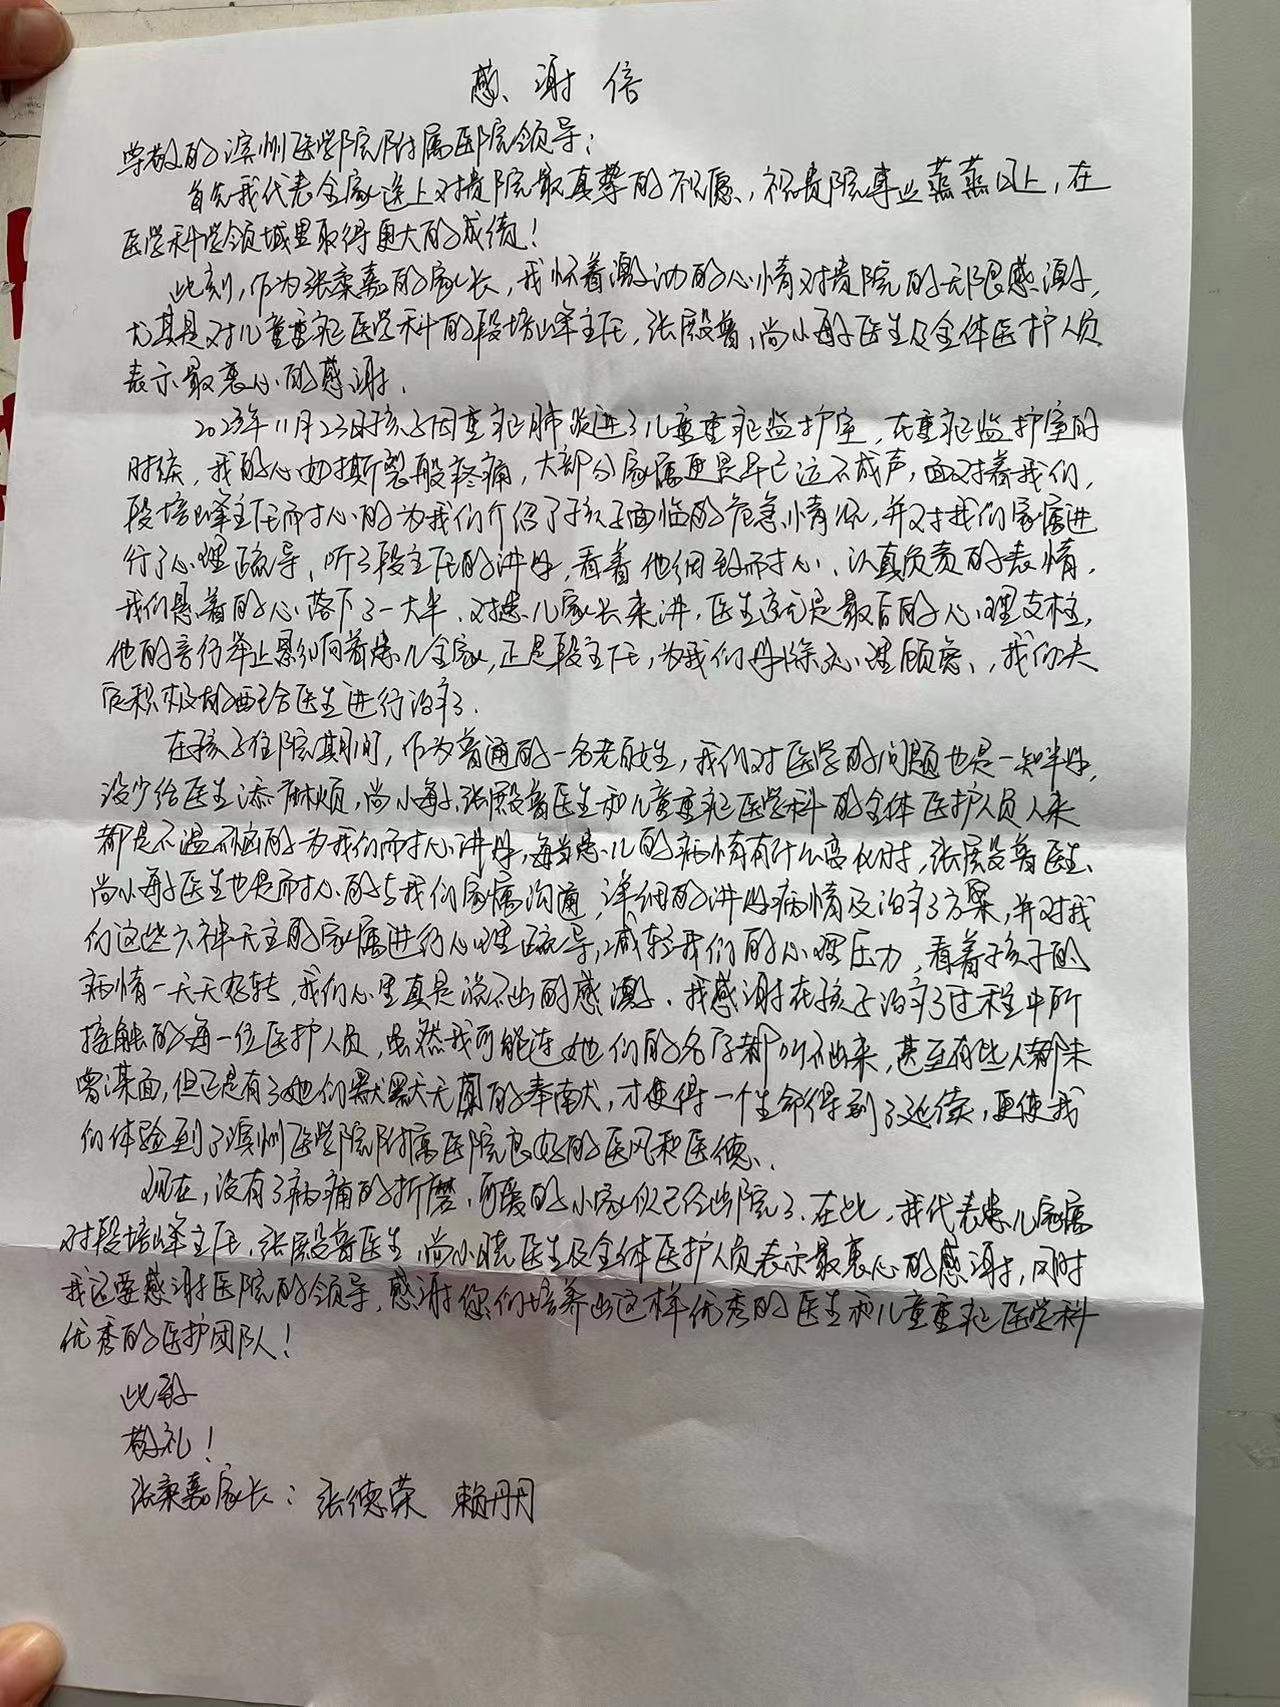 感谢信
尊敬的滨州医学院附属医院领导：
首先我代表全家送上对贵院最真挚的祝愿，祝贵院事业蒸蒸日上，在
医学科学领域里取得更大的成绩！
此刻，作为张秉嘉的家长，我怀着激动的心情对贵院的无限感激，
尤其是对儿童重症医学科的段培峰主任，张殿着，尚小敏医生及全体医护人员
表示最衷心的感谢．
2023年11月23日孩子因重症肺炎进了儿童重症监护室，在重症监护室的
时候，我的心如撕裂般疼痛，大部分家属更是早已泣不成声，面对着我们，
段培峰主任耐心的为我们介绍了孩子面临的危急情况，并对我们家属进
行了心理疏导，听了段主任的讲解，看着他细致耐心、认真负责的表情，
我们悬着的心落下了一大半．对患儿家长来讲，医生就是最后的心理支柱，
他的言行举止影响着患儿全家，正是段主任，为我们解除了心理顾虑，我们决
定积极的配合医生进行治疗．
在孩子住院期间，作为普通的一名老百姓，我们对医学的问题也是一知半解，
没少给医生添麻烦，尚小敏，张殿着医生和儿童重症医学科的全体医护人员从来
都是不温不恼的为我们耐心讲解，每当患儿的病情有什么变化时，张殿着医生、
尚小敏医生也是耐心的与我们家属沟通，详细的讲解病情及治疗方案，并对我
们这些六神无主的家属进行心理疏导，减轻我们的心理压力，看着孩子的
病情一天天好转，我们心里真是说不出的感激．我感谢在孩子治疗过程中所
接触的每一位医护人员，虽然我可能连她们的名字都叫不出来，甚至有些人都未
曾谋面，但正是有了她们默默无闻的奉献，才使得一个生命得到了延续，更使我
们体验到了滨州医学院附属医院良好的医风和医德．
现在，没有了病痛的折磨，可爱的小家伙已经出院了．在此，我代表患儿家属
对段培峰主任，张殿着医生，尚小晓医生及全体医护人员表示最衷心的感谢，同时
我还要感谢医院的领导，感谢您们培养出这样优秀的医生和儿童重症医学科
优秀的医护团队！
此致
敬礼！
张秉嘉家长：张德荣 赖丹丹